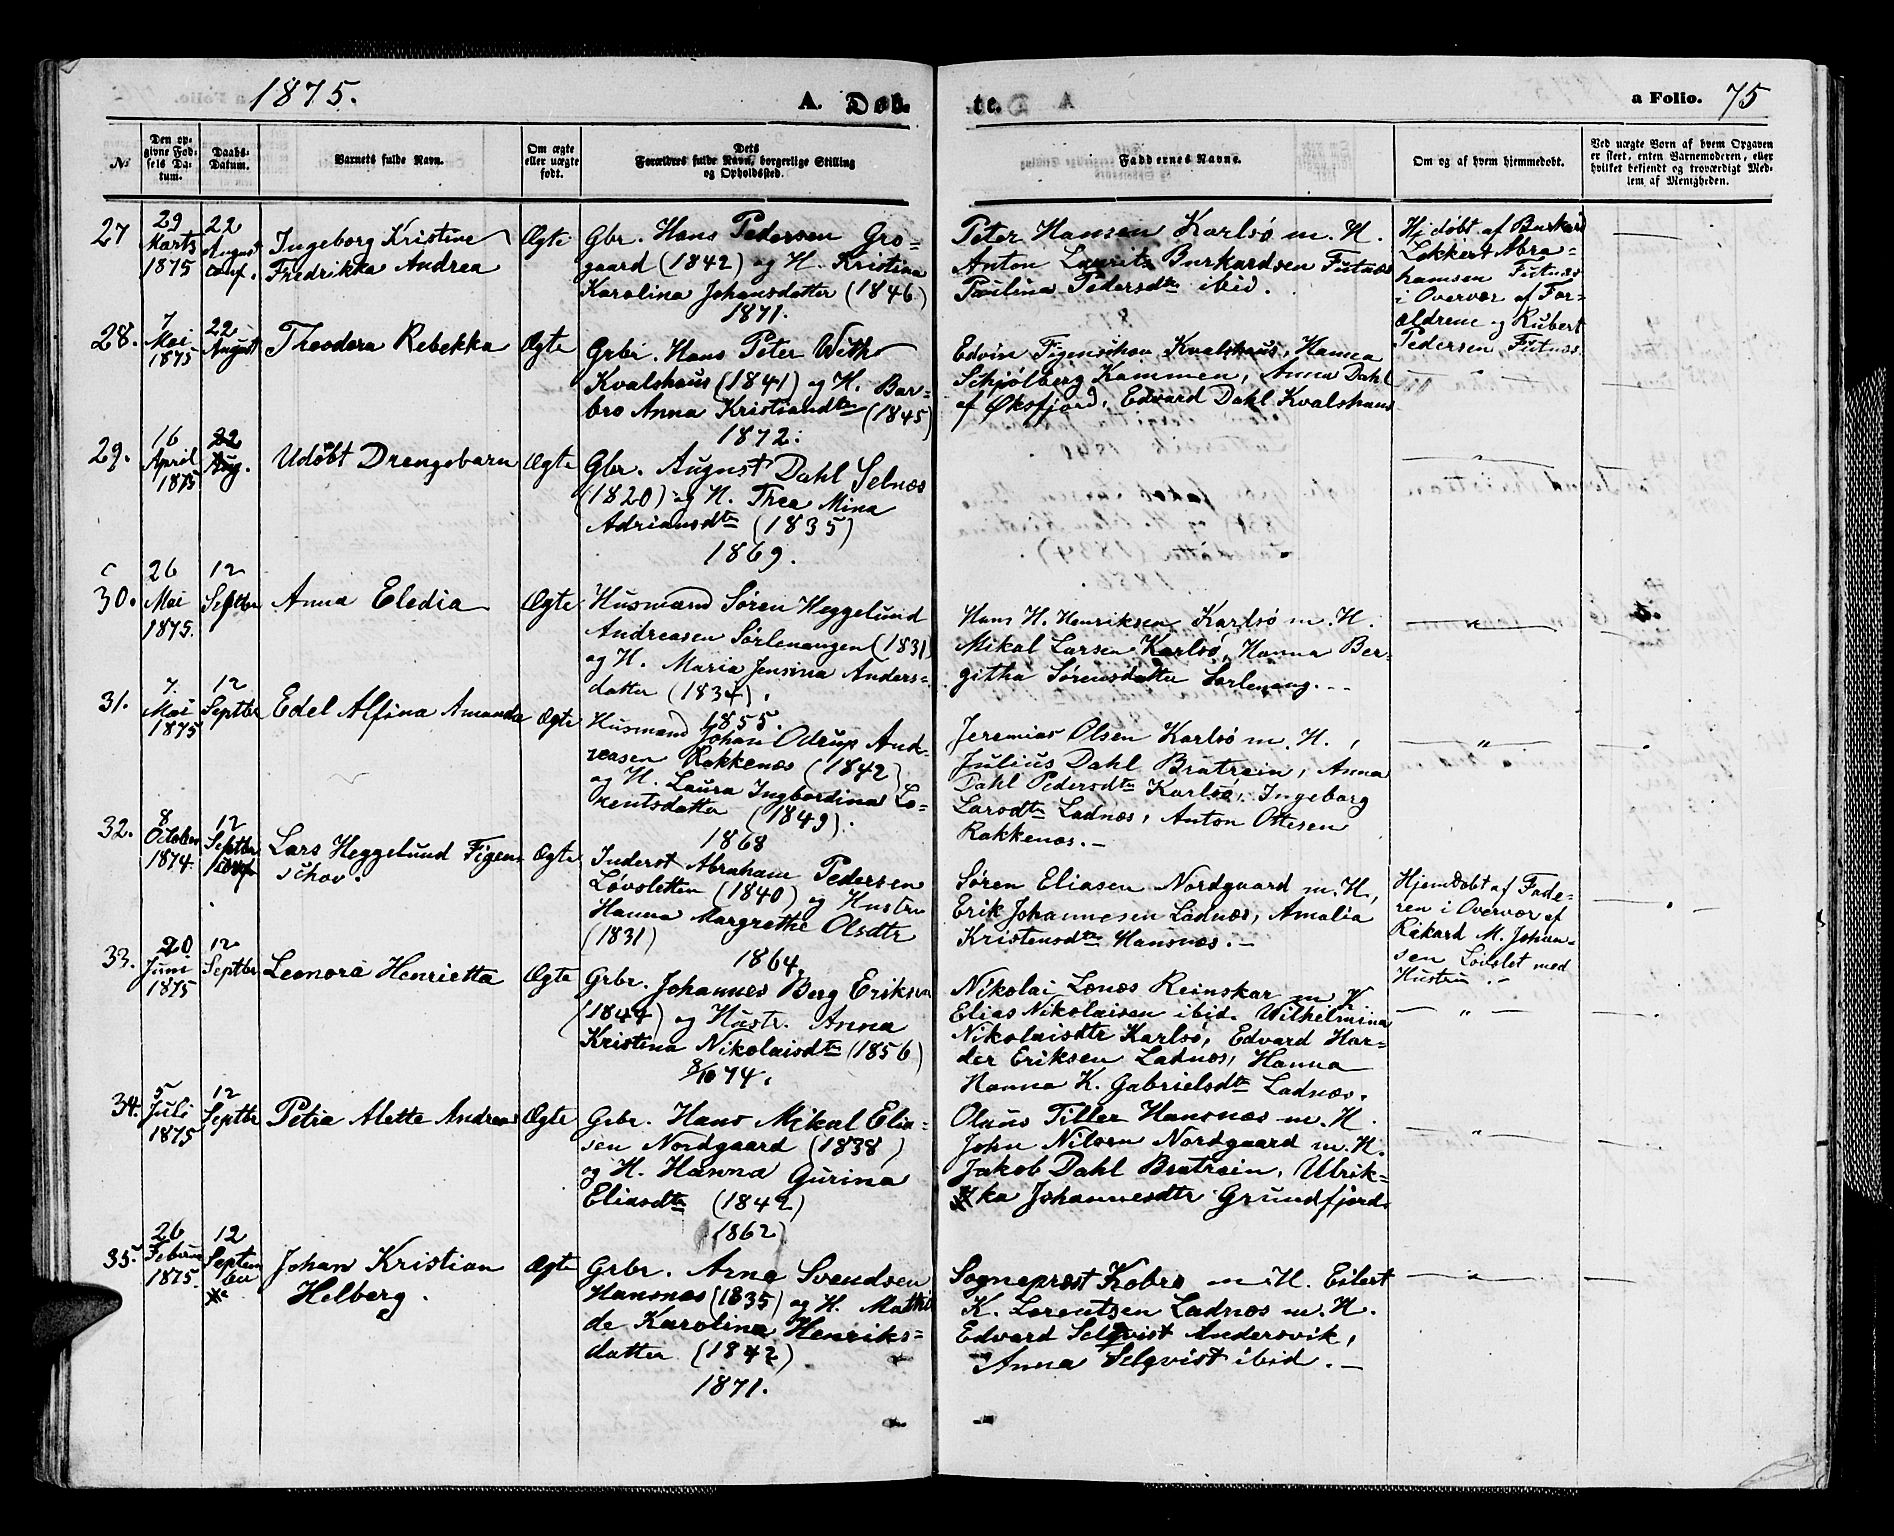 1875.
A. Døb-
te.
a Folio. 75
No
Den op-
givne Fød-
sels Da-
tum.
Daabs-
Datum.
Barnets fulde Navn.
Om ægte
eller uægte
født.
Dets
Forældres fulde Navn, borgerlige Stilling
og Opholdssted.
Faddernes Navne.
Om og af hvem hjemmedøbt.
Ved uægte Børn af hvem Opgaven
er skeet, enten Barnemoderen, eller
hvilket bekjendt og troværdigt Med-
lem af Menigheden.
27
29
Marts
1875
22
August
conf.
Ingeborg Kristine
Fredrikka Andrea
Ægte
Gbr. Hans Pedersen Gro-
gaard (1842) og H. Kristina
Karolina Johansdatter (1846)
1871.
Peter Hansen Karlsø m. H.
Anton Laurits Burkardsen Futnæs
Paulina Pedersdtr ibid.
Hj døbt af Burkard
Lekkert Abra-
hamsen Futnæs
i Overvær af For-
ældrene og Rubert
Pedersen Futnæs.
28.
7
Mai
1875
22
August
Theodora Rebekka
Ægte
Grbr. Hans Peter With
Kvalshaus (1841) og H. Bar-
bro Anna Kristiandtr (1845)
1872.
Edvin Figenschou Kvalshaus, Hanna
Schjølberg Kammen, Anna Dahl
af Øksfjord, Edvard Dahl Kvalshaus
29.
16
April
1875
22
Aug.
Udøbt Drengebarn
Ægte
Gbr. August Dahl Selnæs
(1820) og H. Thea Mina
Adriansdtr (1835)
1869.
30.
26
Mai
1875.
12
Septbr
Anna Eledia
Ægte
Husmand Søren Heggelund
Andreasen Sørlenangen (1831)
og H. Maria Jensina Anders-
datter (1834).
1855.
Hans H. Henriksen Karlsø m. H.
Mikal Larsen Karlsø, Hanna Ber-
githa Sørensdatter Sørlenang.
31.
7.
Mai
1875
12
Septbr
Edel Alfina Amanda
Ægte
Husmand Johan Odrup And-
reasen Rakkenæs (1842)
og H. Laura Ingbordina Lo-
rentsdatter (1849).
1868
Jeremias Olsen Karlsø m. H.,
Julius Dahl Bratrein, Anna
Dahl Pedersdtr Karlsø, Ingeborg
Larsdtr Ladnæs, Anton Ottesen
Rakkenæs.
32.
8
October
1874.
12
Septbr
conf
Lars Heggelund Figen-
schov.
Ægte
Inderst Abraham Pedersen
Løvsletten (1840) og Hustru
Hanna Margrethe Olsdtr
(1831)
1864.
Søren Eliasen Nordgaard m. H,
Erik Johannesen Ladnæs, Amalia
Kristensdtr Hansnæs.
Hjemdøbt af Fade-
ren i Overvær af
Rikard M. Johan-
sen Løvslet med
Hustru.
33.
20
Juni
1875
12
Septbr
Leonora Henrietta
Ægte
Grbr. Johannes Berg Eriksen
(1844) og Hustr. Anna
Kristina Nikolaisdtr (1856)
8/10 74.
Nikolai Lænæs Reinskar m H
Elias Nikolaisen ibid. Wilhelmina
Nikolaisdtr Karlsø, Edvard Har-
der Eriksen Ladnæs, Hanna
Hanna K. Gabrielsdtr Ladnæs.
34.
5
Juli
1875
12
Septbr
Petra Alette Andrea
Ægte
Grbr. Hans Mikal Elia-
sen Nordgaard (1838)
og H. Hanna Gurina
Eliasdtr (1842)
1862
Olaus Tiller Hansnæs m. H.
John Nilsen Nordgaard m. H.
Jakob Dahl Bratrein, Ulrik-
ka Johannesdtr Grundfjord.
35.
26
Februar
1875.
12
Septem
ber
Johan Kristian
Helberg.
Ægte
Grbr. Arne Svendsen
Hansnæs (1835) og H. Mathil
de Karolina Henriks-
datter (1842)
1871.
Sogneprest Kobro m. H. Eilert
K. Lorentsen Ladnæs m. H.
Edvard Selqvist Andersvik,
Anna Selqvist ibid.